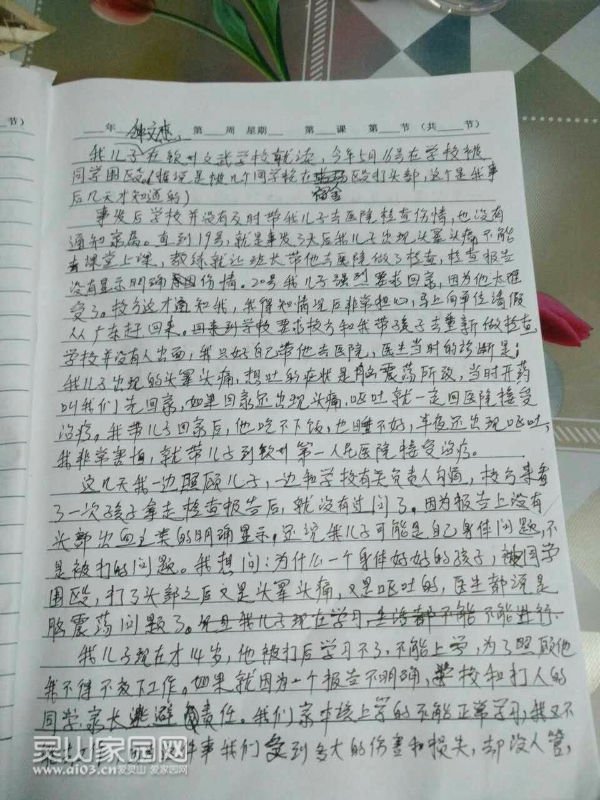 节)
年 第 周 星期 第 课 第 节 (共 节)
我儿子在钦州文武学校就读，今年5月16号在学校被
同学围殴(据说是被几个同学轮在宿舍殴打头部,这个是我事
后几天才知道的)
事发后学校并没有及时带我儿子去医院检查伤情,也没有
通知家属。直到19号,就是事发3天后我儿子出现头晕头痛不能
去课堂上课，教练就让班长带他去医院做了检查，检查报告
没有显示明确伤情。20号我儿子强烈要求回家,因为他太难
受了。校方这才通知我,我得知情况后非常担心,马上向单位请假
从广东赶回来。回来到学校要求校方和我带孩子去重新做检查
学校并没有人出面,我只好自己带他去医院,医生当时的诊断是:
我儿子出现的头晕头痛,想吐的症状是脑震荡所致,当时开药
叫我们先回家,如果回家还出现头痛,呕吐就一定回医院接受
治疗。我带儿子回家后,他吃不下饭,也睡不好,半夜还出现呕吐,
我非常害怕,就带儿子到钦州第一人民医院接受治疗。
这几天我一边照顾儿子,一边和学校有关负责人沟通,校方来看
了一次孩子拿走检查报告后,就没有过问了。因为报告上没有
头部出血之类的明确显示,还说我儿子可能是自己身体问题,不
是被打的问题。我想问:为什么一个身体好好的孩子,被同学
围殴,打了头部之后又是头晕头痛,又是呕吐的,医生都说是
脑震荡问题了。而且我儿子现在学习生活都不能不能进行.
我儿子现在才14岁,他被打后学习不了,不能上学,为了照顾他
我不得不放下工作。如果就因为一个报告不明确,学校和打人的
同学家长逃避责任。我们家本该上学的不能正常学习,我又不
件事我们受到多大的伤害和损失,却没人管,
灵山家园网
www.ai03.cn 爱灵山 爱家园